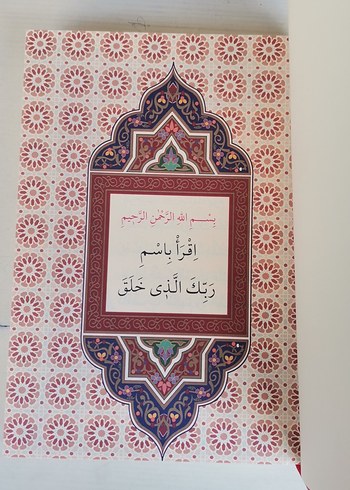 بِسْمِ اللهِ الرَّحْمٰنِ الرَّحِيمِ
اِقْرَأْ بِاسْمِ
رَبِّكَ الَّذِى خَلَقَ